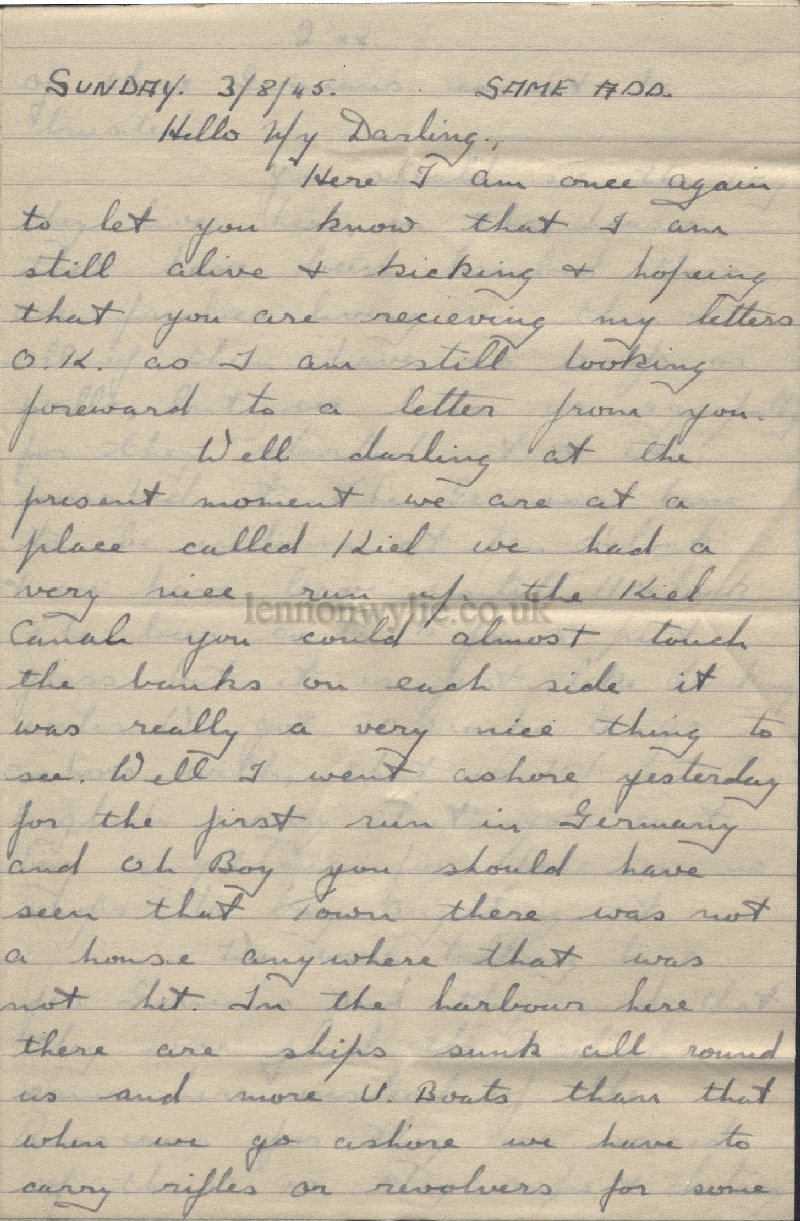 SUNDAY. 3/8/45. SAME ADD.
Hello My Darling,
Here I am once again
to let you know that I am
still alive & kicking & hopeing
that you are recieving my letters
O.K. as I am still looking
foreward to a letter from you.
Well darling at the
present moment we are at a
place called Kiel we had a
very nice run up the Kiel
lennonwylie.co.uk
Canal you could almost touch
the banks on each side it
was really a very nice thing to
see. Well I went ashore yesterday
for the first run in Germany
and Oh Boy you should have
seen that Town there was not
a house anywhere that was
not hit. In the harbour here
there are ships sunk all round
us and more U. Boats than that
when we go ashore we have to
carry rifles or revolvers for some